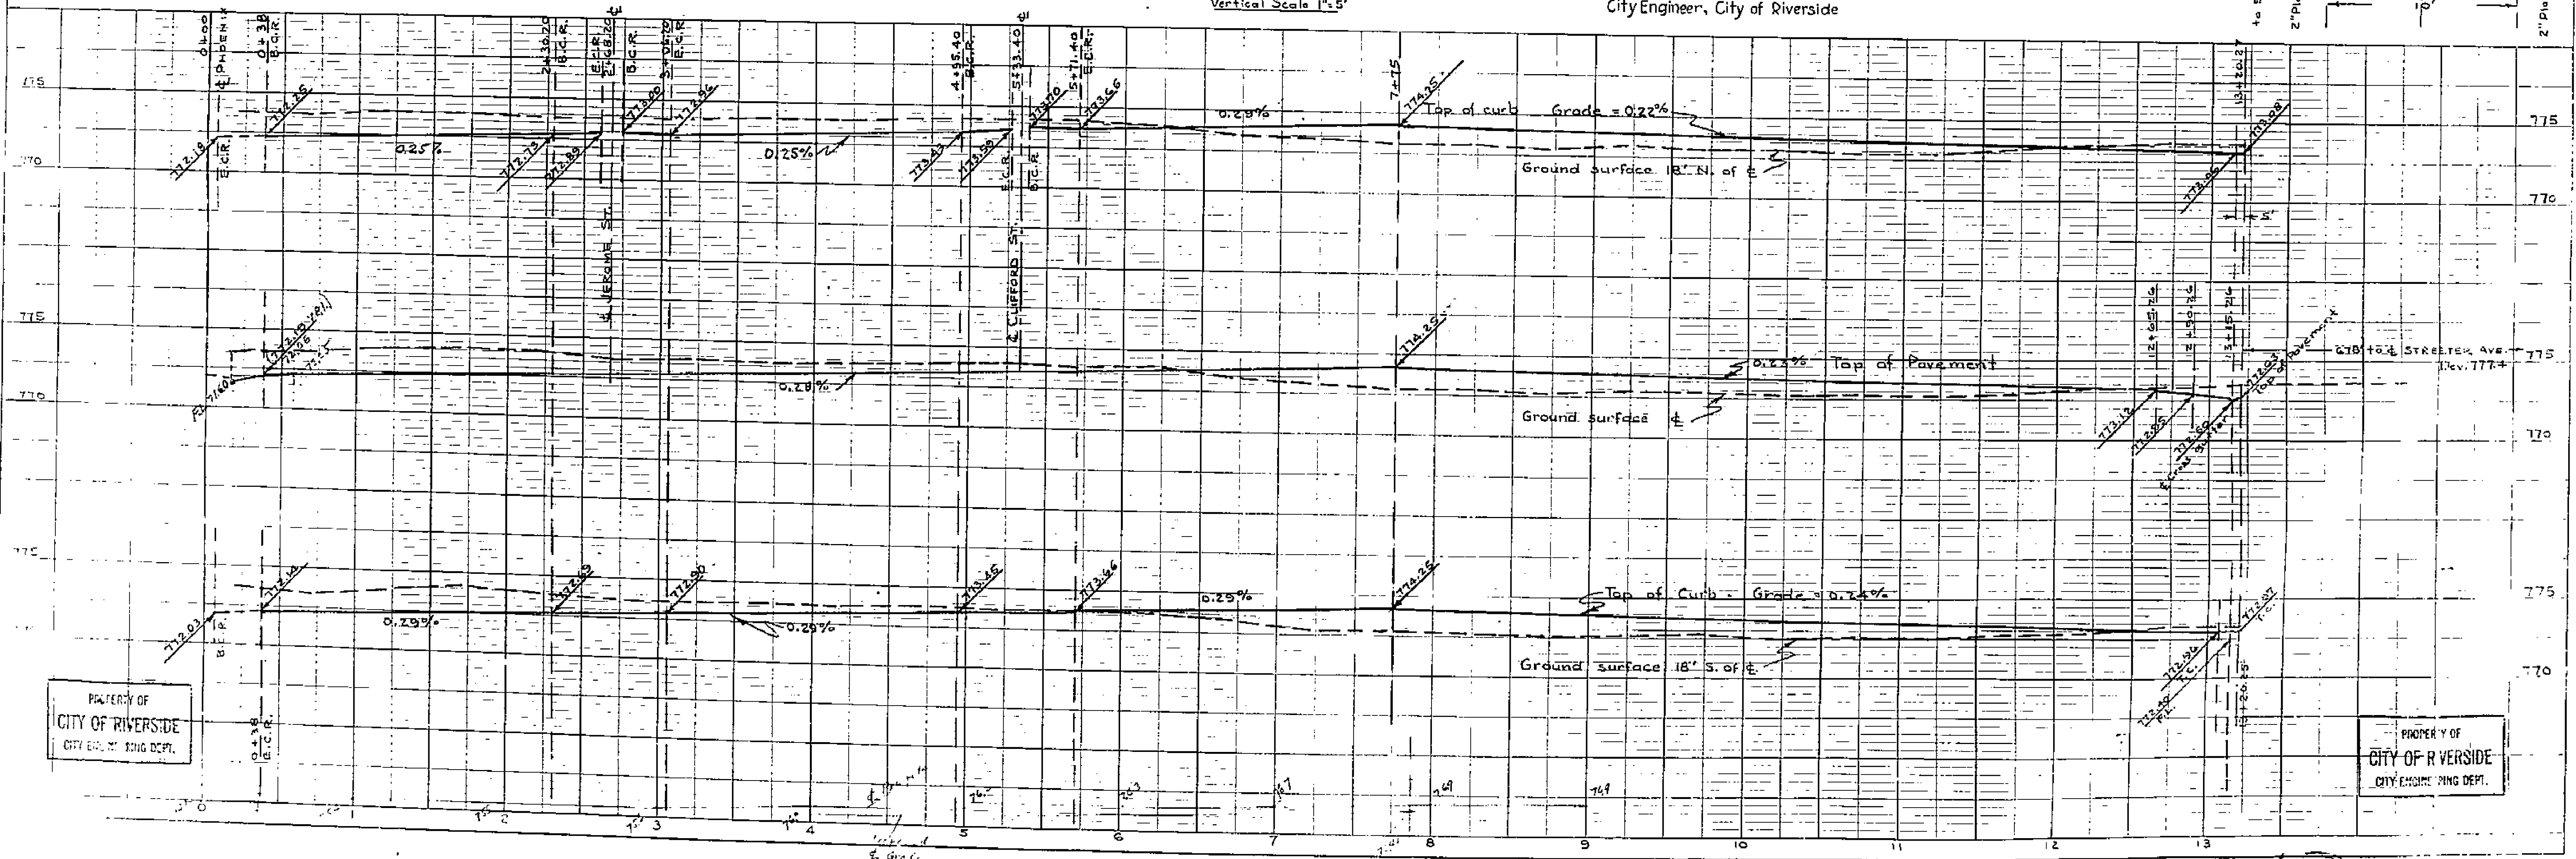 Vertical Scale 1"=5'
City Engineer, City of Riverside
0+00
℄ PHOENIX
E.C.R.
0+38
B.C.R.
2+30.20
B.C.R.
E.C.R.
2+68.20
℄
B.C.R.
3+06.20
E.C.R.
4+95.40
B.C.R.
5+33.40
℄
5+71.40
E.C.R.
7+75
13+20.27
2" Pla
10'
2" Pla
775
772.18
772.25
0.25%
772.73
772.89
773.00
772.96
0.25%
773.43
773.59
E.C.R.
B.C.R.
773.70
773.66
0.29%
774.25
Top of curb Grade = 0.22%
Ground surface 18' N. of ℄
773.06
773.08
775
770
770
℄ JEROME ST.
℄ CLIFFORD ST.
775
772.18
770
0.28%
774.25
0.23% Top of Pavement
Ground surface ℄
12+65.26
12+90.26
13+15.26
773.12
772.85
772.60
℄ cross gutter
772.03
Top of Pavement
670' to ℄ STREETER AVE.
Elev. 777.+
775
770
775
772.03
B.C.R.
772.14
0.29%
772.69
772.90
0.29%
773.45
773.66
0.29%
774.25
Top of Curb - Grade = 0.24%
Ground surface 18' S. of ℄
772.96
T.C.
772.97
T.C.
772.40
F.L.
13+20.25
775
770
0+38
E.C.R.
PROPERTY OF
CITY OF RIVERSIDE
CITY ENGINEERING DEPT.
PROPERTY OF
CITY OF RIVERSIDE
CITY ENGINEERING DEPT.
76.3
76.7
76.9
76.9
0
2
3
4
5
6
7
8
9
10
11
12
13